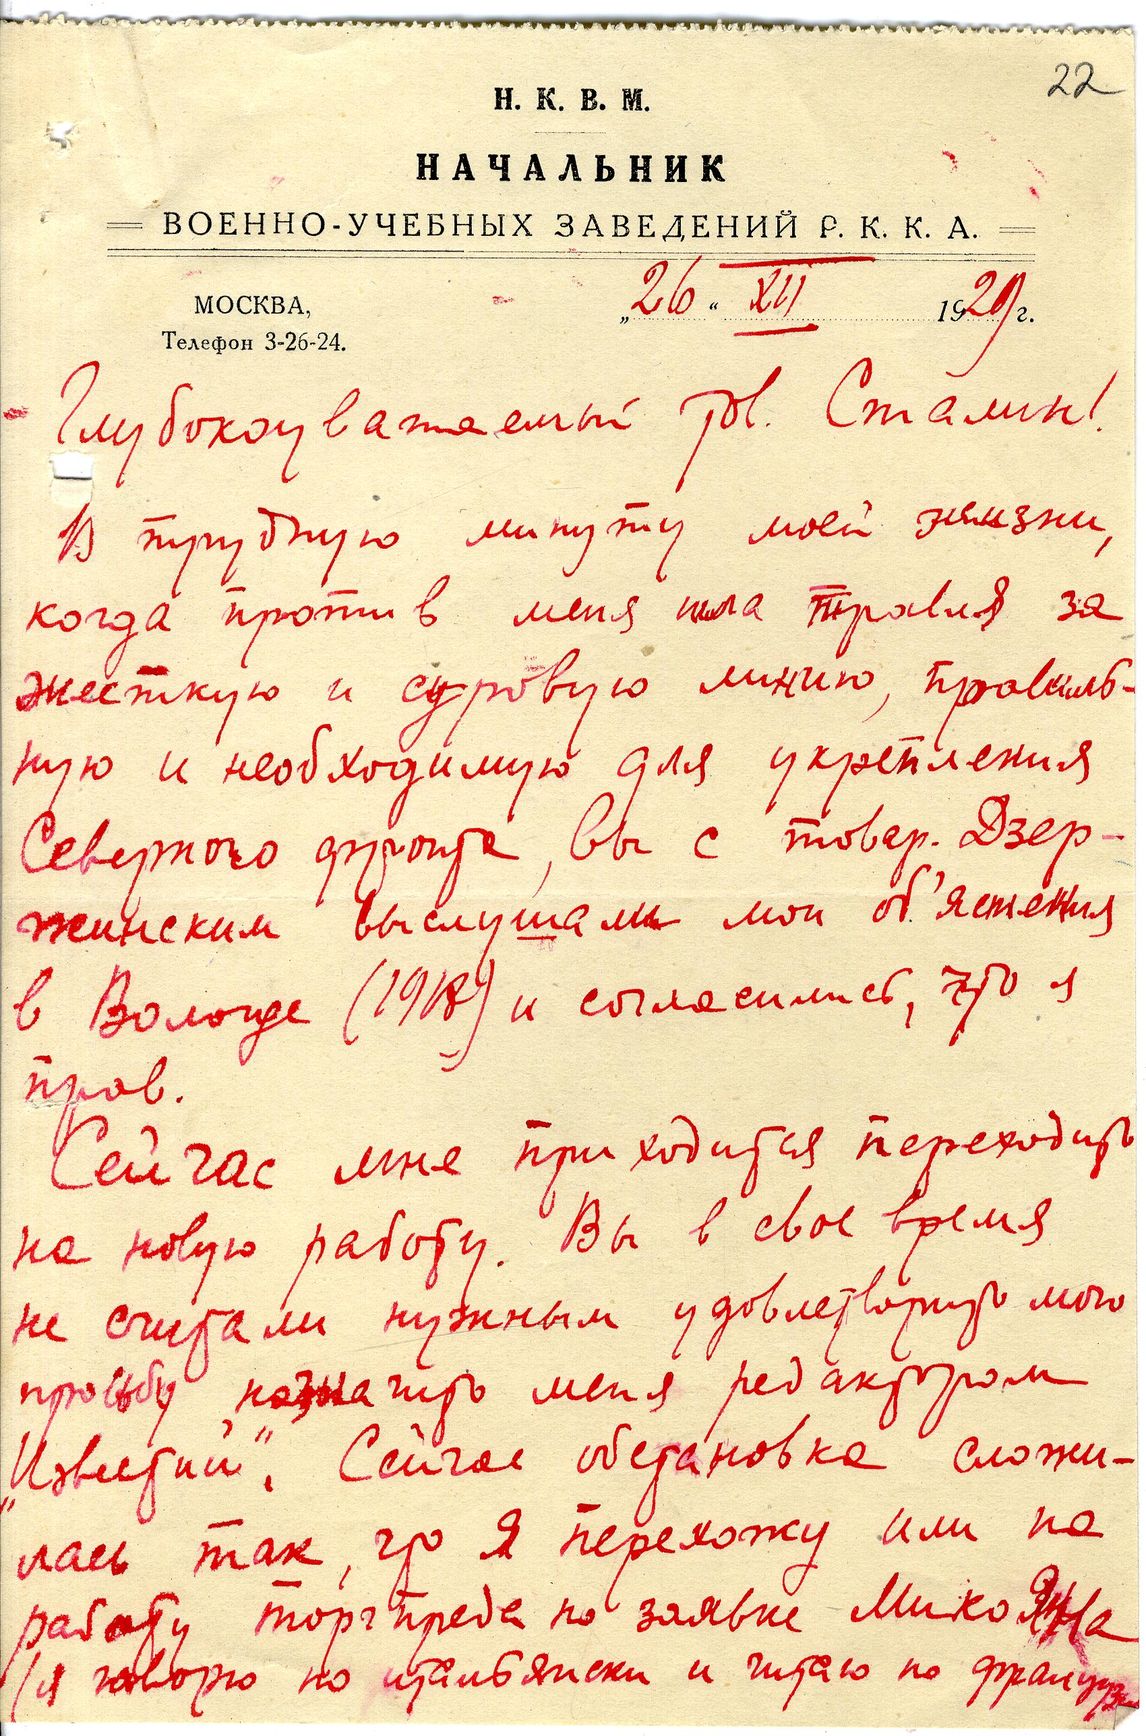 22
Н. К. В. М.
НАЧАЛЬНИК
ВОЕННО-УЧЕБНЫХ ЗАВЕДЕНИЙ Р. К. К. А.
МОСКВА,
Телефон 3-26-24.
„26“ XII 1929 г.
Глубокоуважаемый тов. Сталин!
В трудную минуту моей жизни,
когда против меня шла травля за
жесткую и суровую линию, правиль-
ную и необходимую для укрепления
Северного фронта, Вы с товар. Дзер-
жинским выслушали мои об'яснения
в Вологде (1918) и согласились, что я
прав.
Сейчас мне приходится переходить
на новую работу. Вы в свое время
не считали нужным удовлетворить мою
просьбу назначить меня редактором
„Известий“. Сейчас обстановка сложи-
лась так, что я перехожу или на
работу торгпреда по заявке Микояна
(я говорю по итальянски и читаю по француз